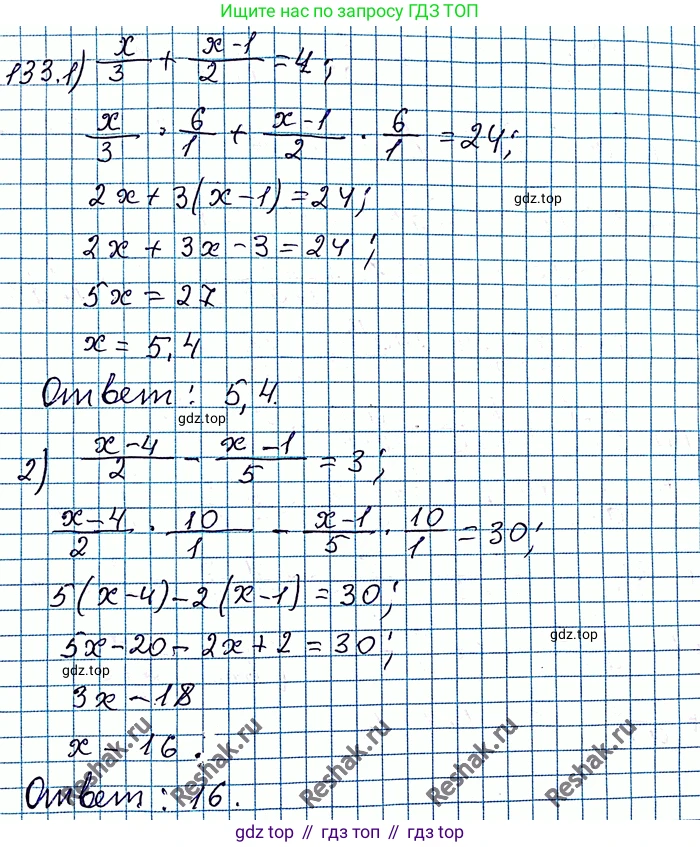 Ищите нас по запросу ГДЗ ТОП
133.1) x/3 + (x-1)/2 = 4;
x/3 · 6/1 + (x-1)/2 · 6/1 = 24;
2x + 3(x-1) = 24;
gdz.top
2x + 3x - 3 = 24;
5x = 27
x = 5,4
Ответ: 5,4.
gdz.top
2) (x-4)/2 - (x-1)/5 = 3;
(x-4)/2 · 10/1 - (x-1)/5 · 10/1 = 30;
5(x-4)-2(x-1) = 30;
5x-20-2x+2 = 30;
gdz.top
gdz.top
3x - 18
x - 16.
Ответ: 16.
Reshak.ru Reshak.ru Reshak.ru Reshak.ru Reshak.ru
gdz top // гдз топ // гдз.top